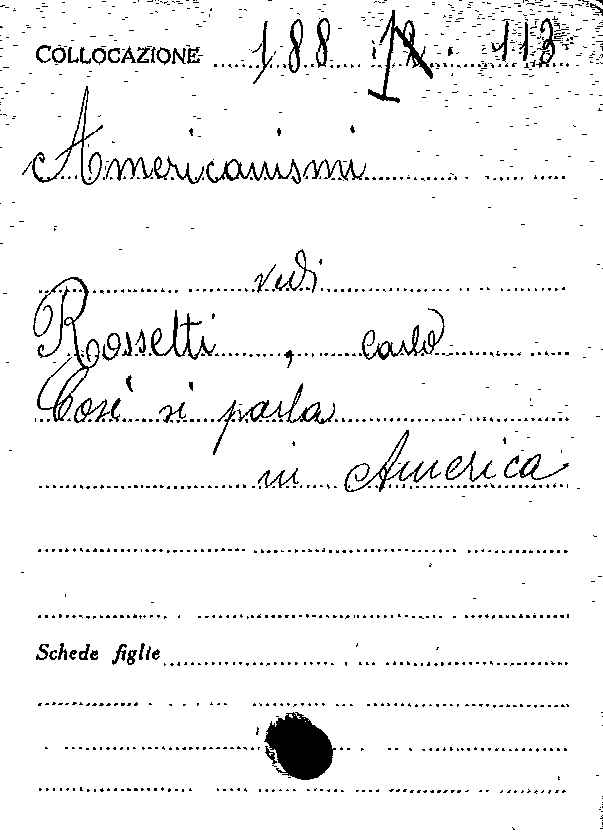 COLLOCAZIONE 188 113
Americanismi
vedi
Rossetti, Carlo
Così si parla
in America
Schede figlie